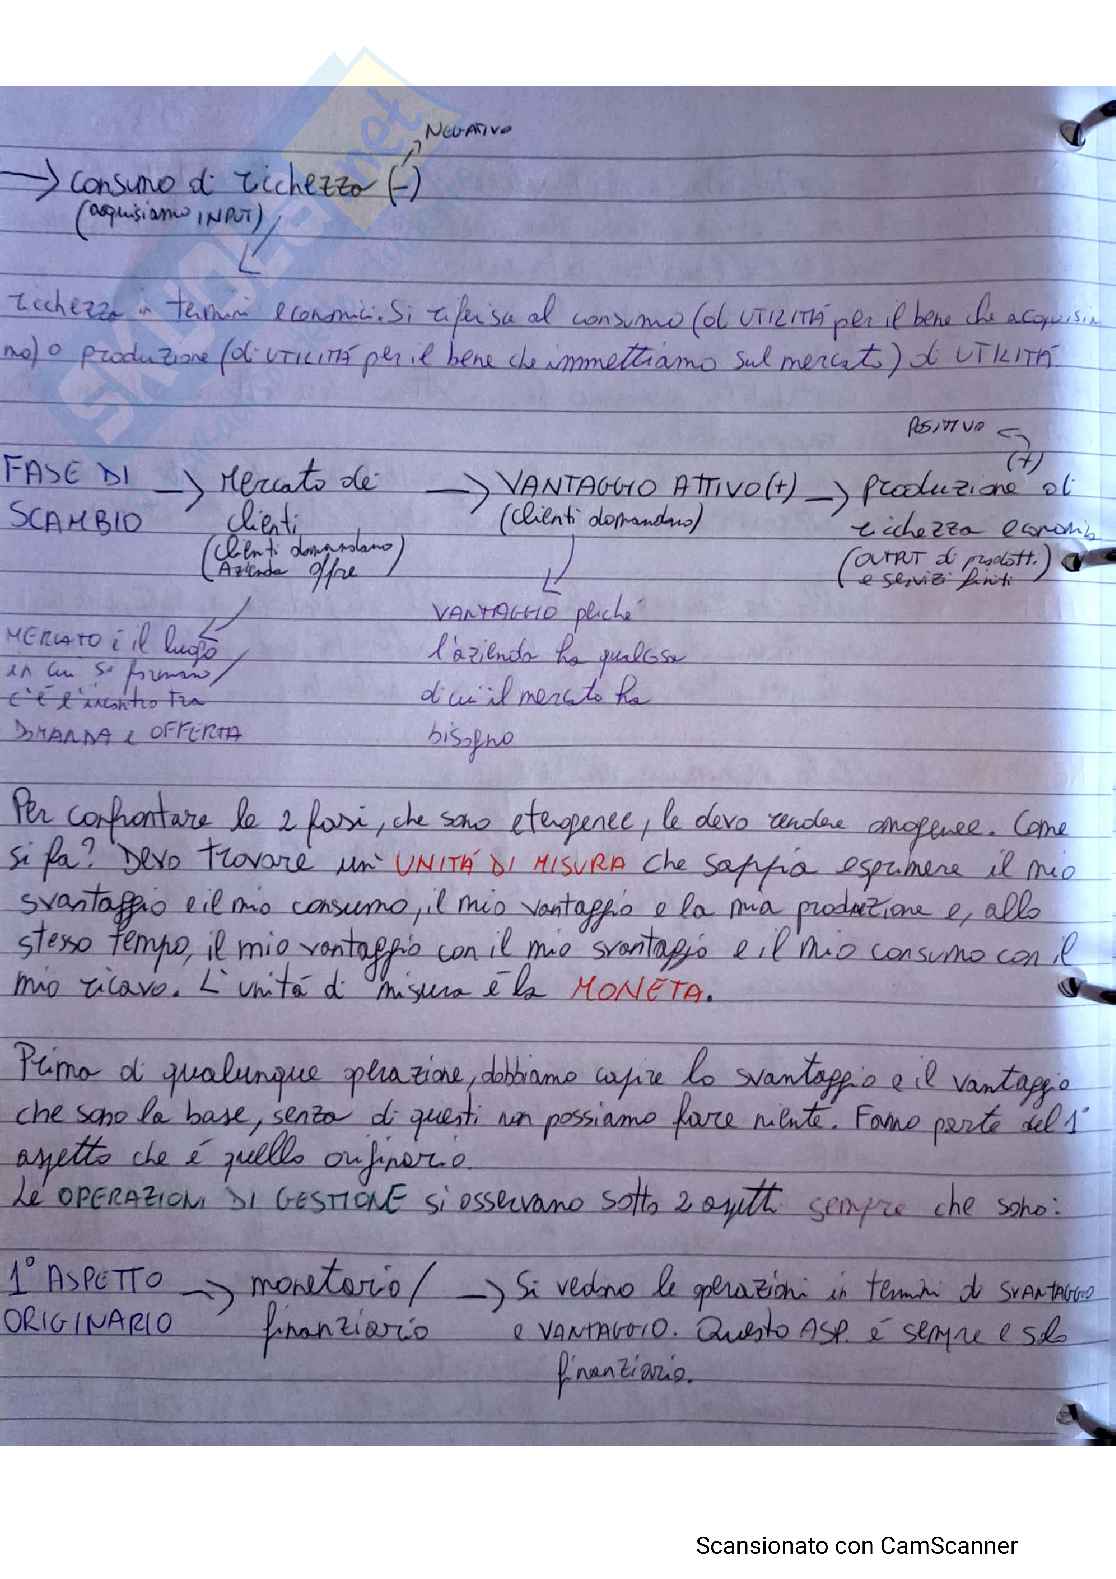 NEGATIVO
→ consumo di ricchezza (-)
(acquisiamo INPUT)
ricchezza in termini economici. Si riferisce al consumo (di UTILITÁ per il bene che acquisia
mo) o produzione (di UTILITÁ per il bene che immettiamo sul mercato) di UTILITÁ
POSITIVO
(+)
FASE DI → Mercato dei → VANTAGGIO ATTIVO (+) → produzione di
SCAMBIO clienti (clienti domandano) ricchezza economica
(clienti domandano (OUTPUT di prodotti
Azienda offre) e servizi finiti)
VANTAGGIO perché
MERCATO è il luogo l'azienda ha qualcosa
in cui si formano/ di cui il mercato ha
c'è l'incontro tra
DOMANDA e OFFERTA bisogno
Per confrontare le 2 fasi, che sono eterogenee, le devo rendere omogenee. Come
si fa? Devo trovare un' UNITÁ DI MISURA che sappia esprimere il mio
svantaggio e il mio consumo, il mio vantaggio e la mia produzione e, allo
stesso tempo, il mio vantaggio con il mio svantaggio e il mio consumo con il
mio ricavo. L'unitá di misura é la MONETA.
Prima di qualunque operazione, dobbiamo capire lo svantaggio e il vantaggio
che sono la base, senza di questi non possiamo fare niente. Fanno parte del 1°
aspetto che é quello originario.
Le OPERAZIONI DI GESTIONE si osservano sotto 2 aspetti sempre che sono:
1° ASPETTO → monetario/ → Si vedono le operazioni in termini di SVANTAGGIO
ORIGINARIO finanziario e VANTAGGIO. Questo ASP. é sempre e solo
finanziario.
Scansionato con CamScanner